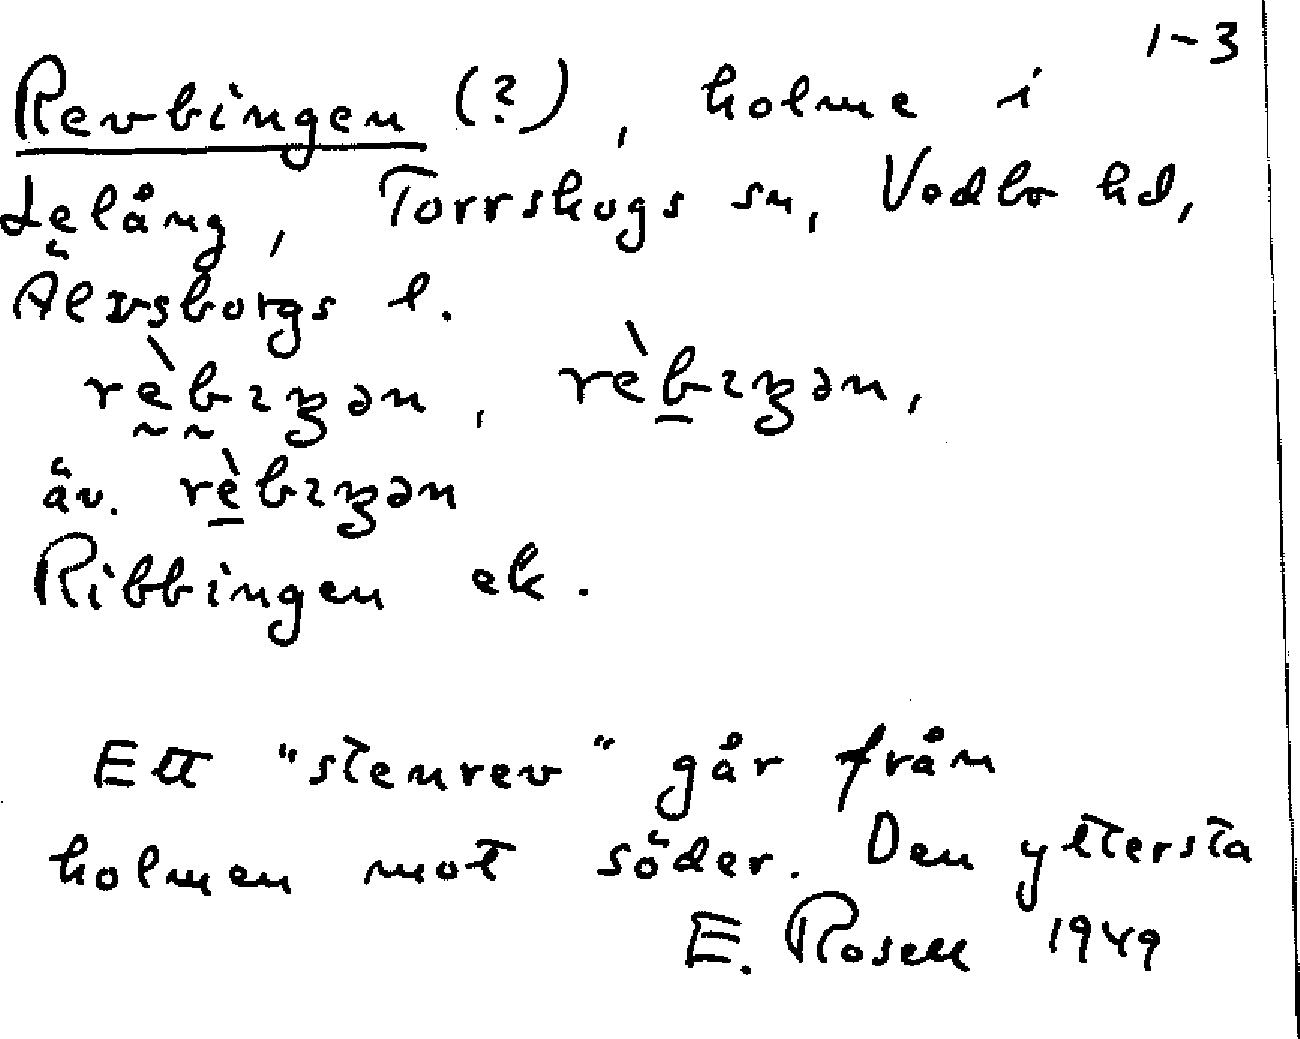 1-3
Revbingen (?), holme i
Lelång, Torrskogs sn, Vedbo hd,
Älvsborgs l.
rḛ̀b̰ɪŋən, rèb̲ɪŋən,
äv. rè̲bɪŋən
Ribbingen ek.
Ett "stenrev" går från
holmen mot söder. Den yttersta
E. Rosell 1949